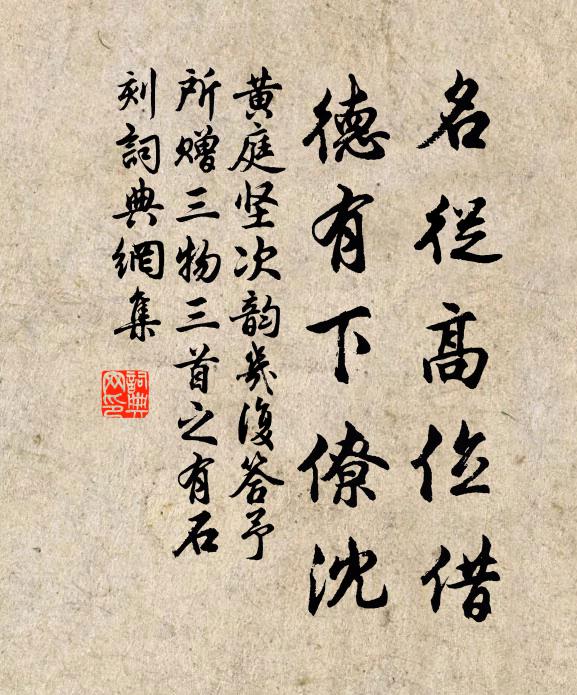 名從高位借
德有下僚沈
黄庭坚次韵幾復答予
所赠三物三首之有石
刻詞典網集
詞典
网印